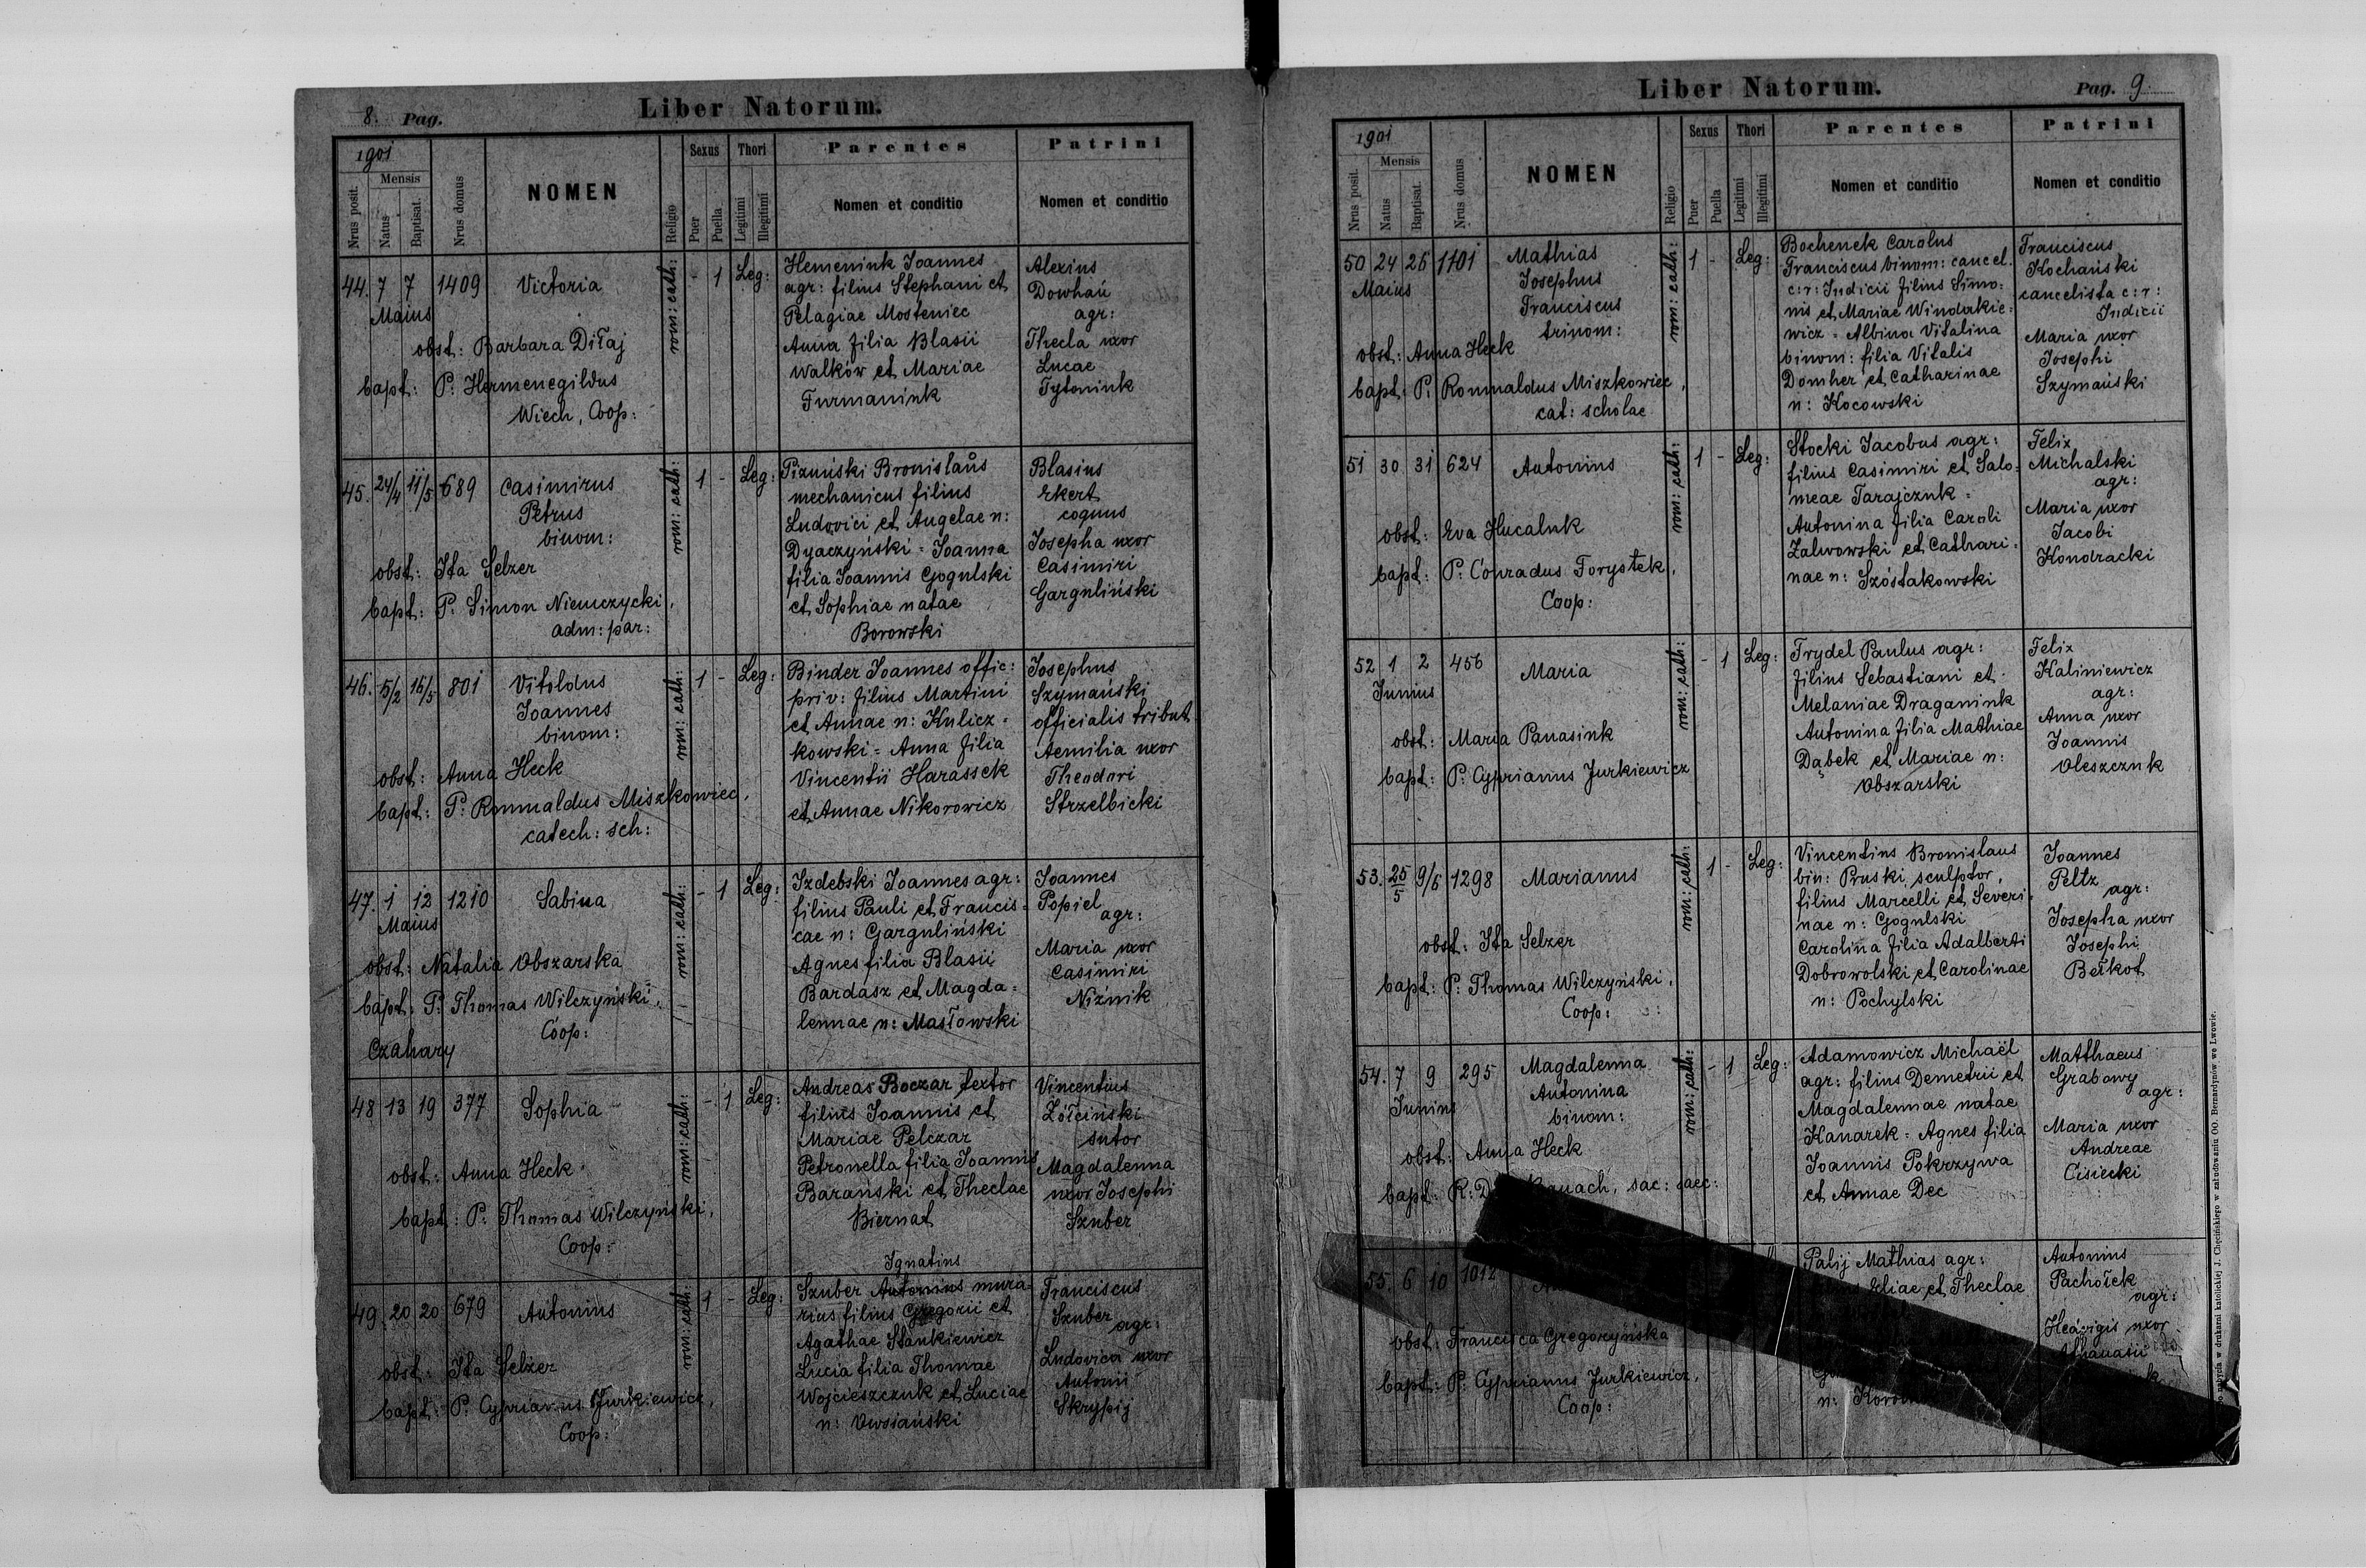 8. Pag.
Liber Natorum.
1901
Nrus posit.
Mensis
Natus
Baptisat.
Nrus domus
NOMEN
Religio
Sexus
Puer
Puella
Thori
Legitimi
Illegitimi
Parentes
Nomen et conditio
Patrini
Nomen et conditio
44. 7 7 1409 Victoria
Maius
rom: cath:
- 1 Leg:
obst: Barbara Diłaj
bapt: P. Hermenegildus
Wiech, Coop:
Hemeniuk Joannes
agr: filius Stephani et
Pelagiae Mosteniec
Anna filia Blasii
Walków et Mariae
Furmaniuk
Alexius
Dowhań
agr:
Thecla uxor
Lucae
Tytoniuk
45. 24/4 11/5 689 Casimirus
Petrus
binom:
rom: cath:
1 - Leg:
obst: Ita Selzer
bapt: P. Simon Niemczycki,
adm: par:
Pizuński Bronislaus
mechanicus filius
Ludovici et Angelae n:
Dyaczyński = Joanna
filia Joannis Gogulski
et Sophiae natae
Borowski
Blasius
Ekert
coquus
Josepha uxor
Casimiri
Garguliński
46. 5/2 15/5 801 Vitoldus
Joannes
binom:
rom: cath:
1 - Leg:
obst: Anna Heck
bapt: P. Romualdus Miszkowiec,
catech: sch:
Binder Joannes offic:
priv: filius Martini
et Annae n: Kulicz=
kowski = Anna filia
Vincentii Harassek
et Annae Nikorowicz
Josephus
Szymański
officialis tribut.
Aemilia uxor
Theodori
Strzelbicki
47. 1 12 1210 Sabina
Maius
rom: cath:
- 1 Leg:
obst: Natalia Obszarska
bapt: P. Thomas Wilczyński,
Coop:
Czahary
Izdebski Joannes agr:
filius Pauli et Francis=
cae n: Garguliński
Agnes filia Blasii
Bardasz et Magda=
lennae n: Masłowski
Joannes
Popiel
agr:
Maria uxor
Casimiri
Niżnik
48 13 19 377 Sophia
rom: cath:
- 1 Leg:
obst: Anna Heck
bapt: P. Thomas Wilczyński,
Coop:
Andreas Boczar textor
filius Joannis et
Mariae Pelczar
Petronella filia Joannis
Barański et Theclae
Biernat
Vincentius
Żółciński
sutor
Magdalenna
uxor Josephi
Szuber
49. 20 20 679 Antonius
rom: cath:
1 - Leg:
obst: Ita Selzer
bapt: P. Cyprianus Jurkiewicz,
Coop:
Ignatius
Szuber Antonius mura=
rius filius Gregorii et
Agathae Stankiewicz
Lucia filia Thomae
Wojcieszczuk et Luciae
n: Owsiański
Franciscus
Szuber
agr:
Ludovica uxor
Antoni
Skrypij
Liber Natorum.
Pag. 9.
1901
Nrus posit.
Mensis
Natus
Baptisat.
Nrus domus
NOMEN
Religio
Sexus
Puer
Puella
Thori
Legitimi
Illegitimi
Parentes
Nomen et conditio
Patrini
Nomen et conditio
50 24 26 1101 Mathias
Maius
Josephus
Franciscus
trinom:
rom: cath:
1 - Leg:
obst: Anna Heck
bapt: P. Romualdus Miszkowiec,
cat: scholae
Bochenek Carolus
Franciscus binom: cancel.
c: r: Judicii filius Simo=
nis et Mariae Windakie=
wicz = Albina Vitalina
binom: filia Vitalis
Domher et Catharinae
n: Kocowski
Franciscus
Kochański
cancelista c: r:
Judicii
Maria uxor
Josephi
Szymański
51 30 31 624 Antonius
rom: cath:
1 - Leg:
obst: Eva Hucaluk
bapt: P. Conradus Forystek,
Coop:
Stocki Jacobus agr:
filius Casimiri et Salo=
meae Tarajczuk =
Antonina filia Caroli
Zalwowski et Cathari=
nae n: Szóstakowski
Felix
Michalski
agr:
Maria uxor
Jacobi
Kondracki
52 1 2 456 Maria
Junius
rom: cath:
- 1 Leg:
obst: Maria Panasiuk
bapt: P. Cyprianus Jurkiewicz
Trydel Paulus agr:
filius Sebastiani et
Melaniae Draganiuk
Antonina filia Mathiae
Dąbek et Mariae n:
Obszarski
Felix
Kaliniewicz
agr:
Anna uxor
Joannis
Oleszczuk
53. 25/5 9/6 1298 Marianus
rom: cath:
1 - Leg:
obst: Ita Selzer
bapt: P. Thomas Wilczyński,
Coop:
Vincentius Bronislaus
bin: Pruski sculptor,
filius Marcelli et Severi=
nae n: Gogulski
Carolina filia Adalberti
Dobrowolski et Carolinae
n: Pochylski
Joannes
Peltz
agr:
Josepha uxor
Josephi
Bełkot
54. 7 9 295 Magdalenna
Junius
Antonina
binom:
rom: cath:
- 1 Leg:
obst: Anna Heck
bapt: R: sac: saec:
Adamowicz Michaël
agr: filius Demetrii et
Magdalennae natae
Kanarek = Agnes filia
Joannis Pokrzywa
et Annae Dec
Matthaeus
Grabowy
agr:
Maria uxor
Andreae
Cisiecki
55 6 10 1012
obst: Francisca Gregorzyńska
bapt: P. Cyprianus Jurkiewicz,
Coop:
Palij Mathias agr:
Eliae et Theclae
n:
Antonius
Pachołek
agr:
Hedvigis uxor
Athanasii
do nabycia w drukarni katolickiej J. Chęcińskiego w zabudowaniu OO. Bernardynów we Lwowie.